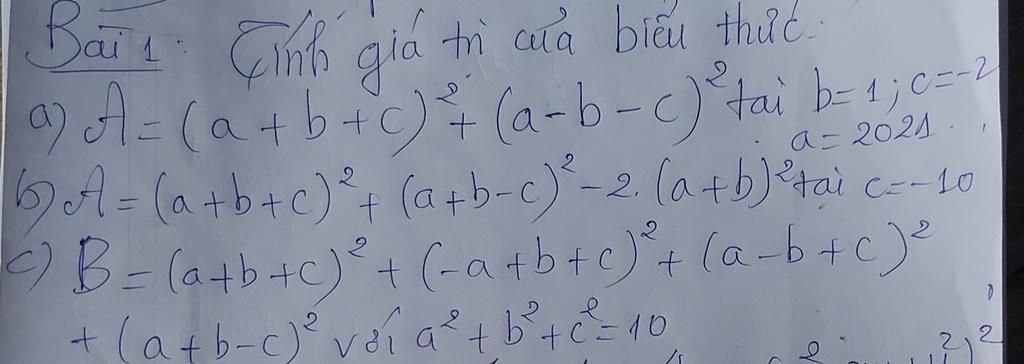 Bài 1: Tính giá trị của biểu thức.
a) A = (a + b + c)² + (a - b - c)² tại b = 1; c = -2
a = 2021.
b) A = (a + b + c)² + (a + b - c)² - 2.(a + b)² tại c = -10
c) B = (a + b + c)² + (-a + b + c)² + (a - b + c)²
+ (a + b - c)² với a² + b² + c² = 10